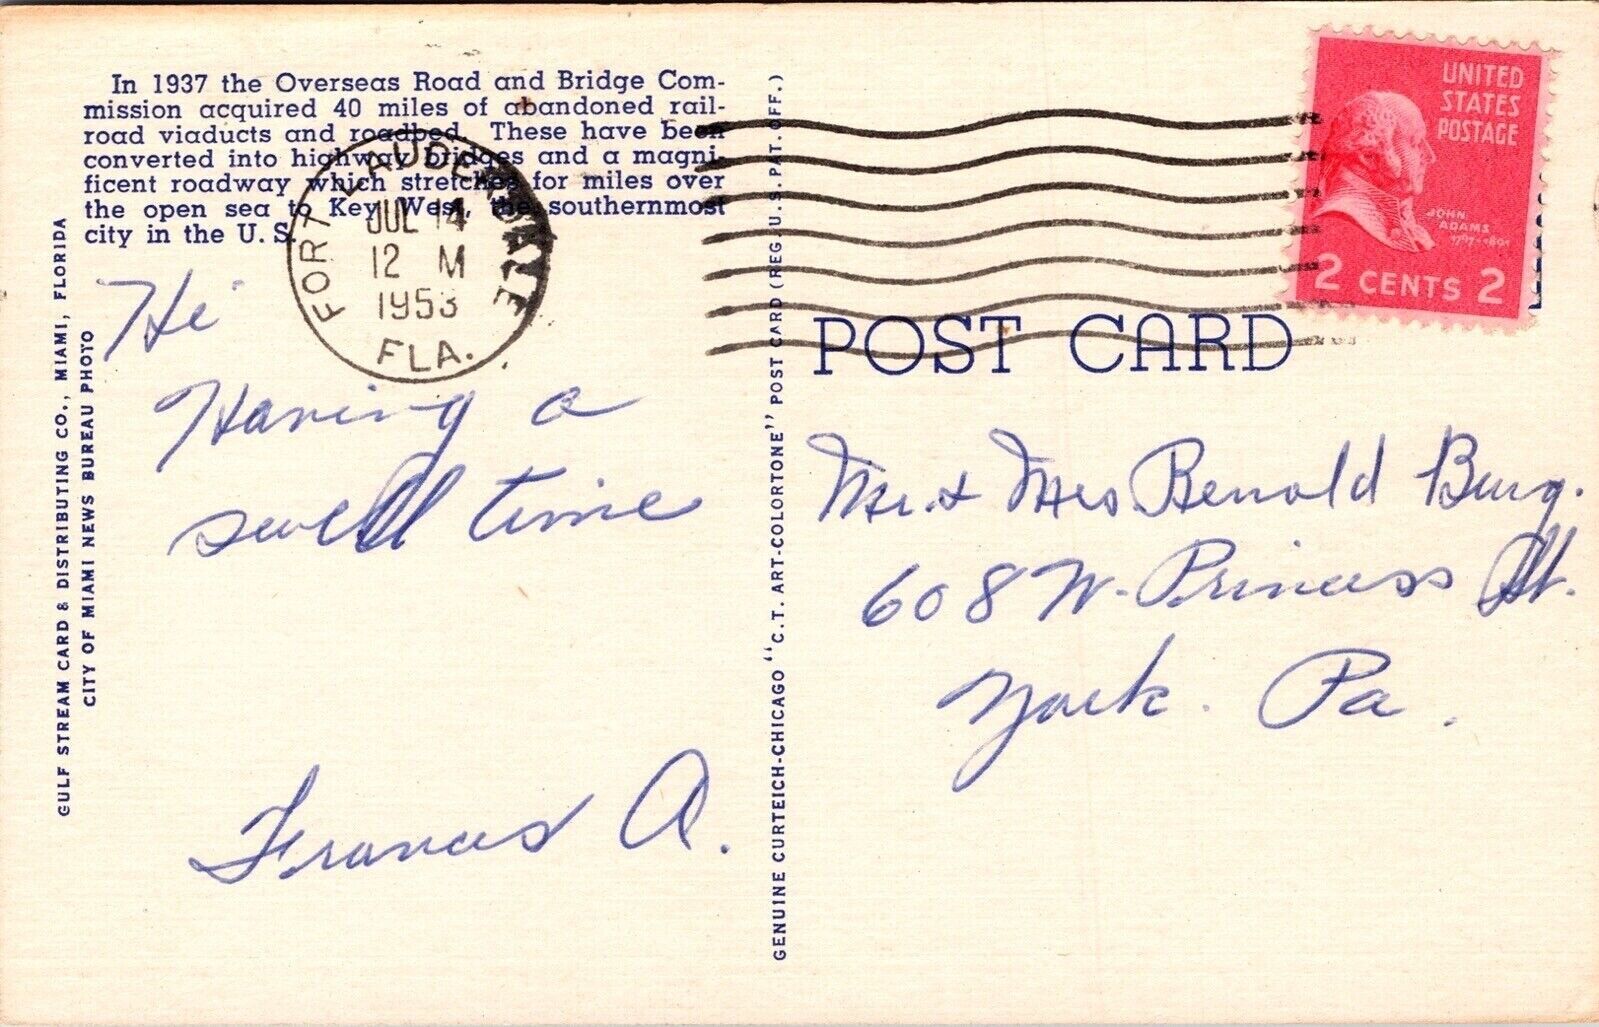 In 1937 the Overseas Road and Bridge Com-
mission acquired 40 miles of abandoned rail-
road viaducts and roadbed. These have been
converted into highway bridges and a magni-
ficent roadway which stretches for miles over
the open sea to Key West, the southernmost
city in the U. S.
FORT LAUDERDALE
JUL 14
12 M
1953
FLA.
UNITED
STATES
POSTAGE
JOHN
ADAMS
1797-1801
2 CENTS 2
POST CARD
GULF STREAM CARD & DISTRIBUTING CO., MIAMI, FLORIDA
CITY OF MIAMI NEWS BUREAU PHOTO
GENUINE CURTEICH-CHICAGO "C.T. ART-COLORTONE" POST CARD (REG. U. S. PAT. OFF.)
Hi
Having a
swell time
Frances A.
Mr. & Mrs Benold Burg.
608 W. Princess St.
York. Pa.